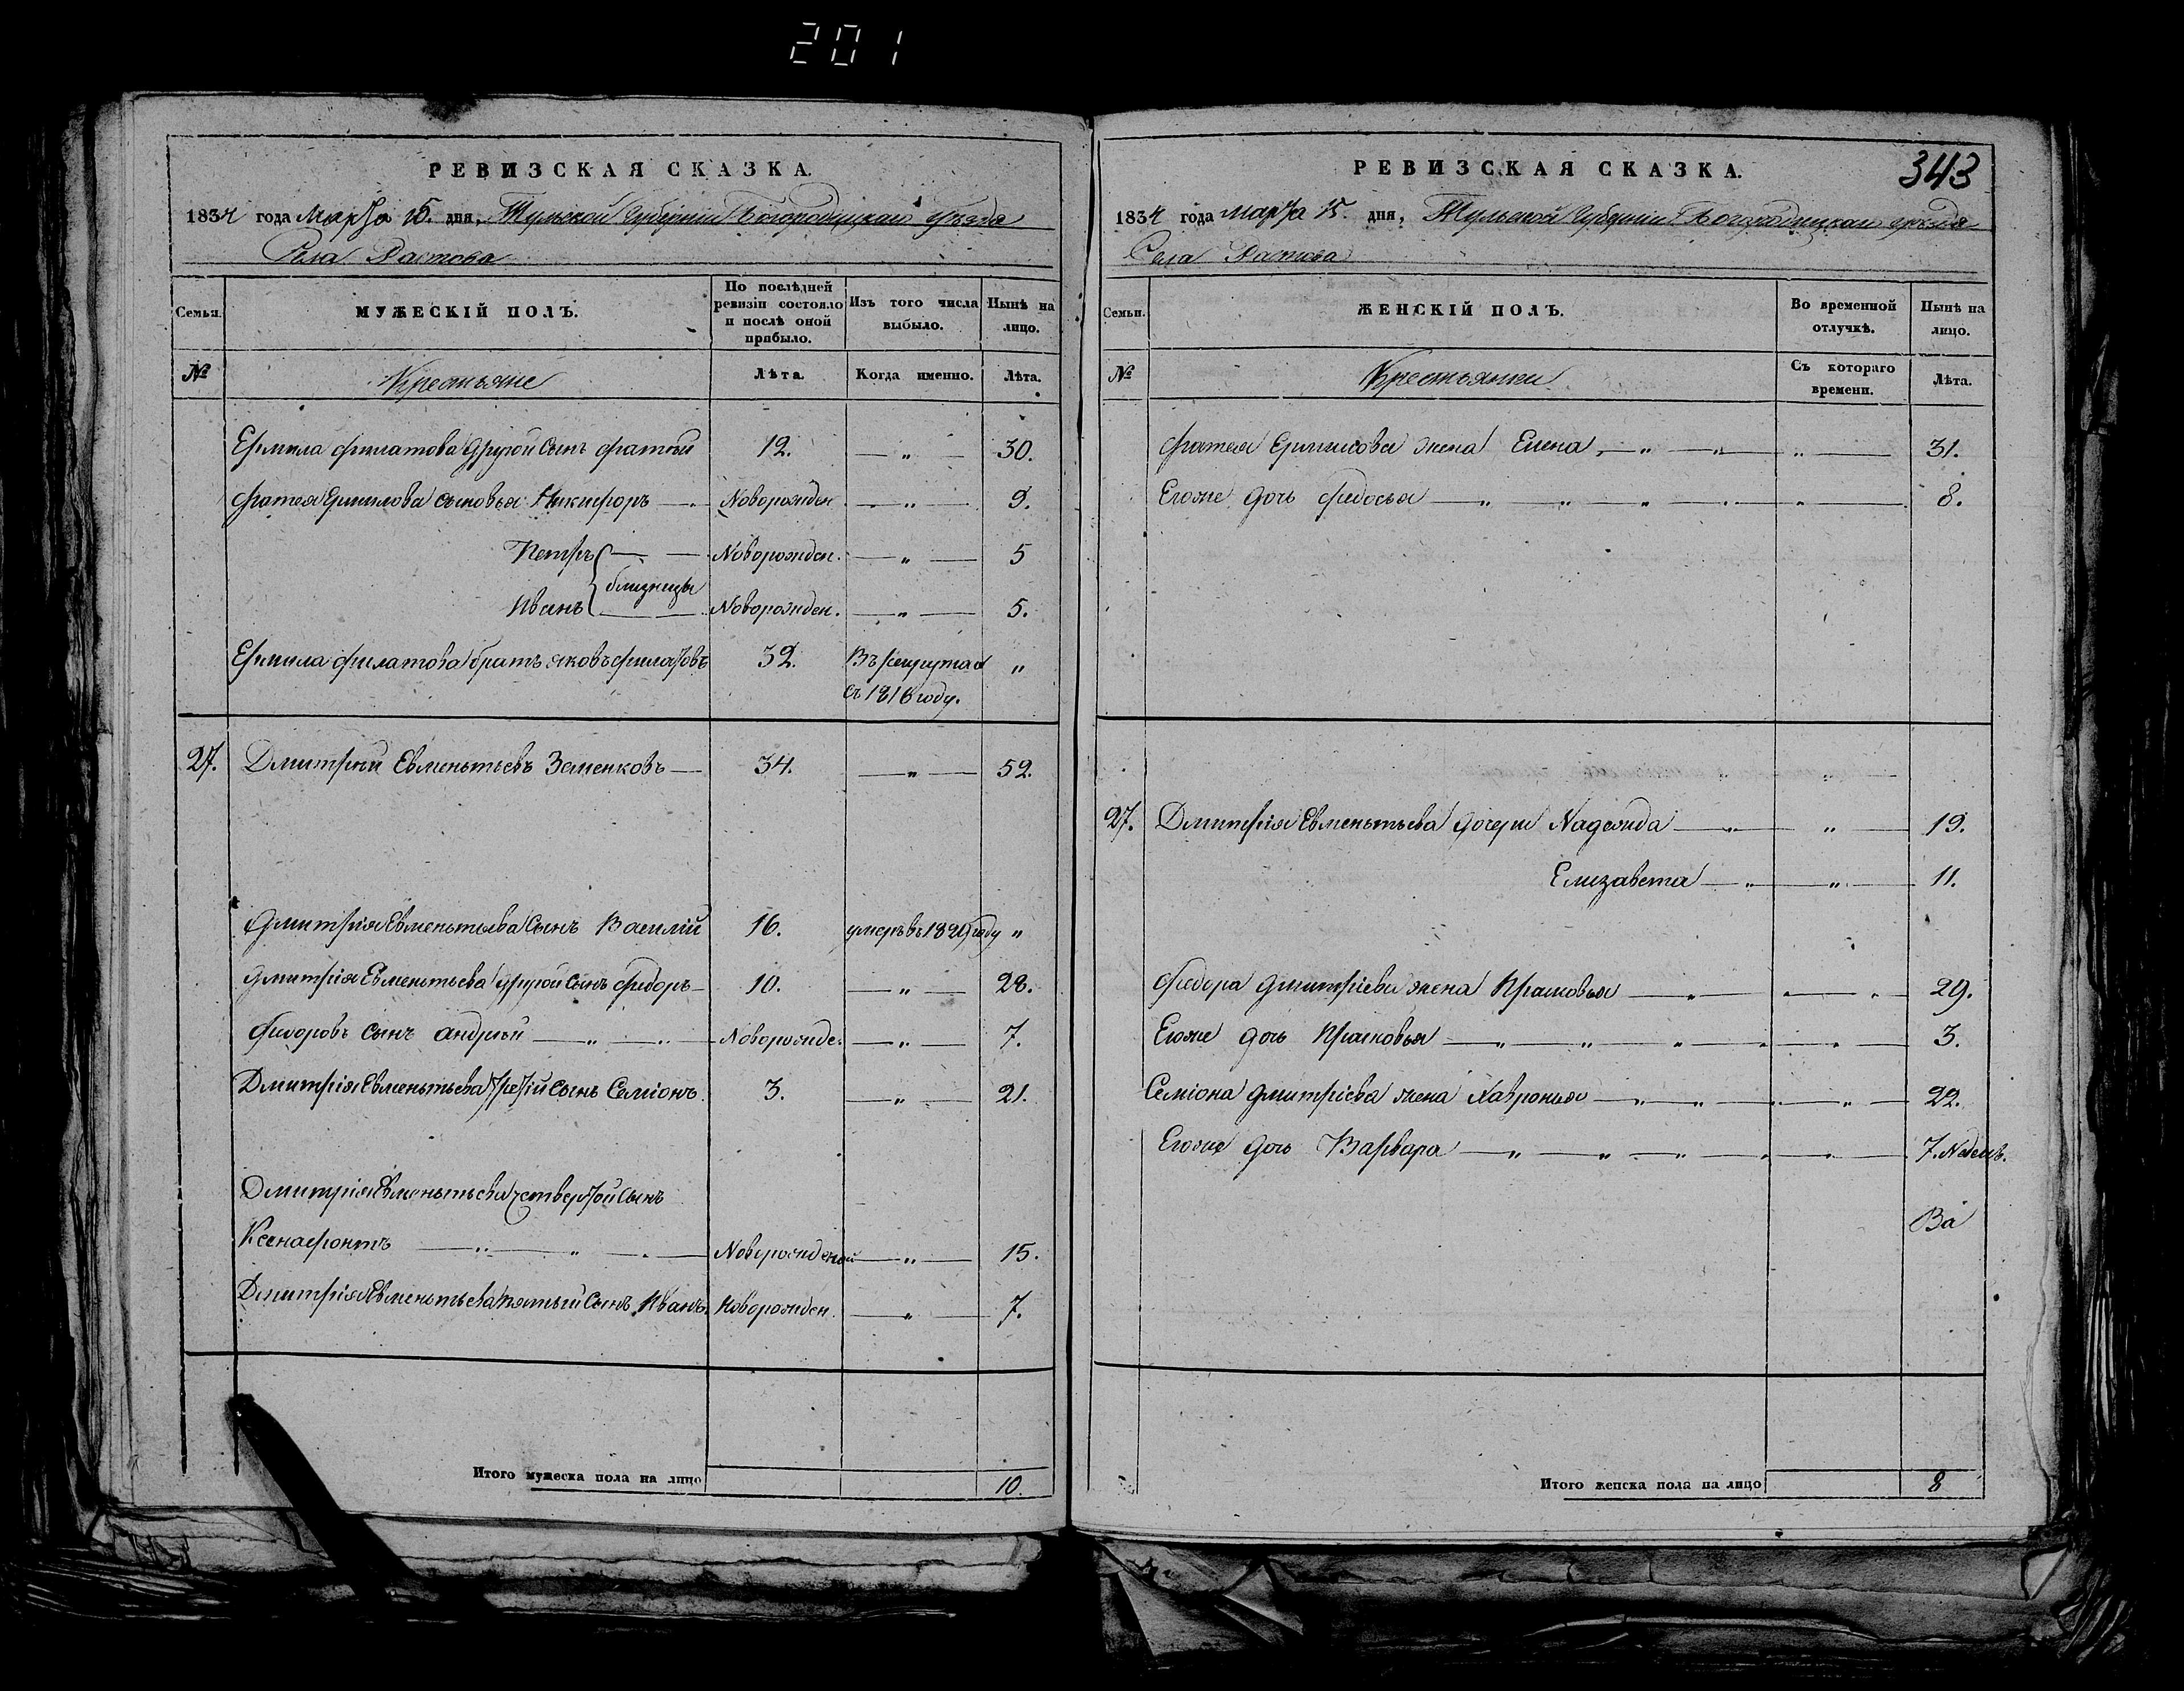 201
РЕВИЗСКАЯ СКАЗКА.
1834 года Марта 15. дня, Тульской Губернии Богородицкаго уезда
Села Ростова
Семья. МУЖЕСКІЙ ПОЛЪ. По послѣдней ревизіи состояло и послѣ оной прибыло. Изъ того числа выбыло. Нынѣ на лицо.
№ Крестьяне Лѣта. Когда именно. Лѣта.
Ермила филатова другой сынъ фатей 12. — „ — 30.
фатея Ермилова сыновья Никифоръ — Новорожден. — „ — 9.
Петръ — — Новорожден. — „ — 5
близнецы
Иванъ — Новорожден. — „ — 5.
Ермила филатова братъ яковъ филатовъ 32. Въ рекрутах „
съ 1816 году.
27. Дмитрий Евменьтьевъ Заменковъ — 34. — „ — 52.
Дмитрія Евменьтьева сынъ Василий 16. умеръ въ 1829 году „
дмитрія Евменьтьева другой сынъ федоръ — 10. — „ — 28.
федоровъ сынъ андрей — „ — „ — Новорожде. — „ — 7.
Дмитрія Евменьтьева третій сынъ Семіонъ. 3. — „ — 21.
Дмитрія Евменьтьева четвертой сынъ
Ксенафонтъ — „ — „ — Новорожденой — „ — 15.
Дмитрія Евменьтьева пятый сынъ Иванъ. Новорожден. — „ — 7.
Итого мужеска пола на лицо 10.
343
РЕВИЗСКАЯ СКАЗКА.
1834 года марта 15. дня, Тульской Губернии Богородицкаго уезда
Села Ростова
Семьи. ЖЕНСКІЙ ПОЛЪ. Во временной отлучкѣ. Нынѣ на лицо.
№ Крестьянки Съ котораго времени. Лѣта.
фатея Ермилова жена Елена — „ — „ — „ — 31.
Егоже дочь федосья — „ — „ — „ — „ — 8.
27. Дмитрія Евменьтьева дочери Надежда — „ — „ — 19.
Елизавета — „ — „ — 11.
федора дмитріева жена Прасковья — „ — „ — 29.
Егоже дочь Прасковья — „ — „ — „ — „ — 3.
Семіона дмитріева жена Хавронья — „ — „ — „ — 22.
Егоже дочь Варвара — „ — „ — „ — „ — 7. Недель.
Ва
Итого женска пола на лицо 8